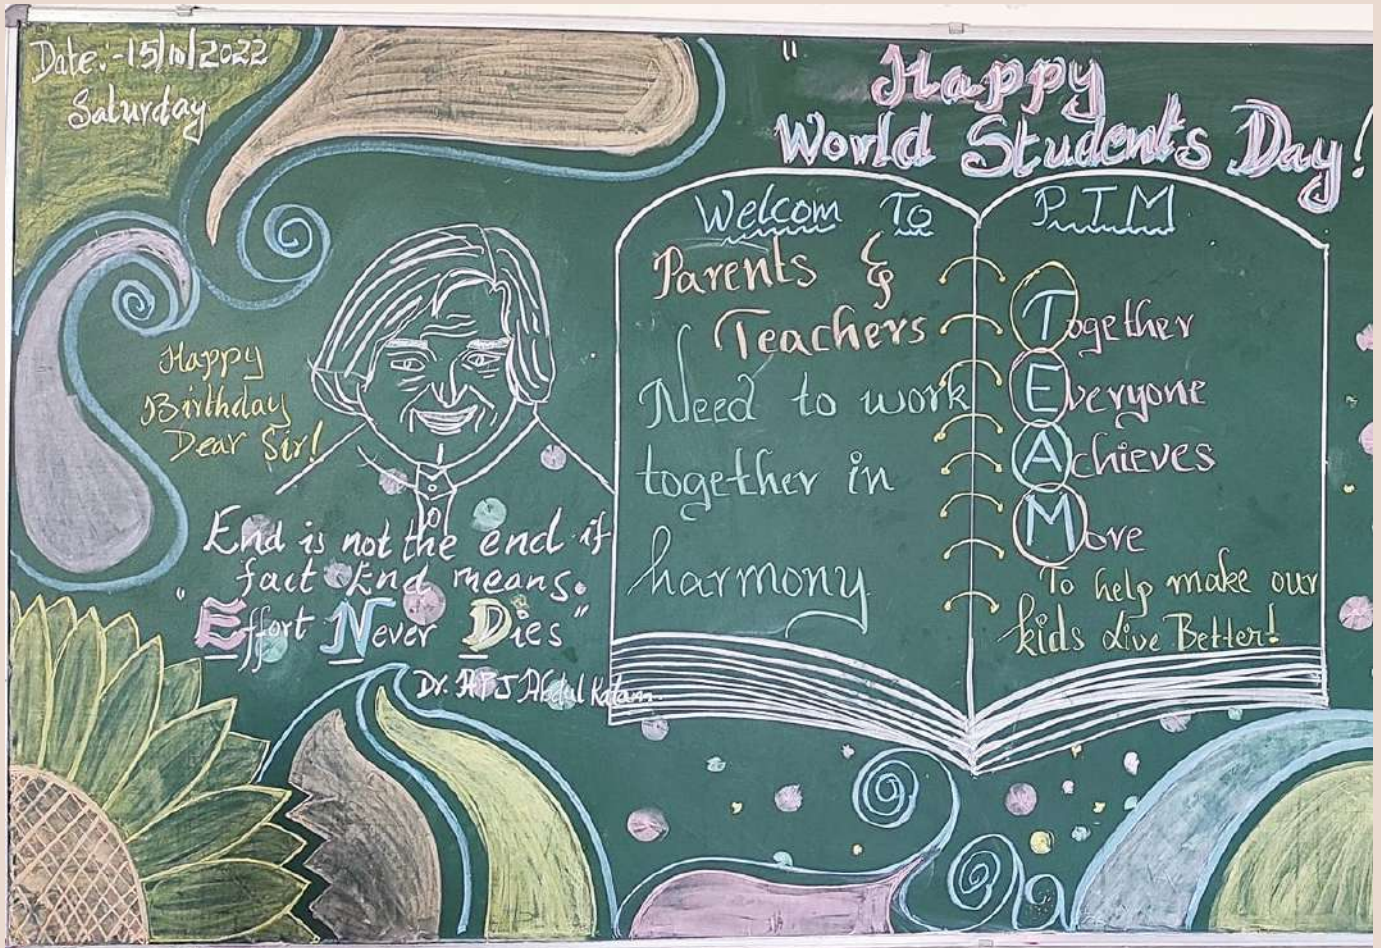 Date:-15/10/2022
Saturday
" Happy
World Student's Day!
Happy
Birthday
Dear Sir!
End is not the end if
fact End means.
"Effort Never Dies"
Dr. APJ Abdul Kalam.
Welcom To
Parents &
Teachers
Need to work
together in
harmony
P.T.M
Together
Everyone
Achieves
More
To help make our
kids Live Better!